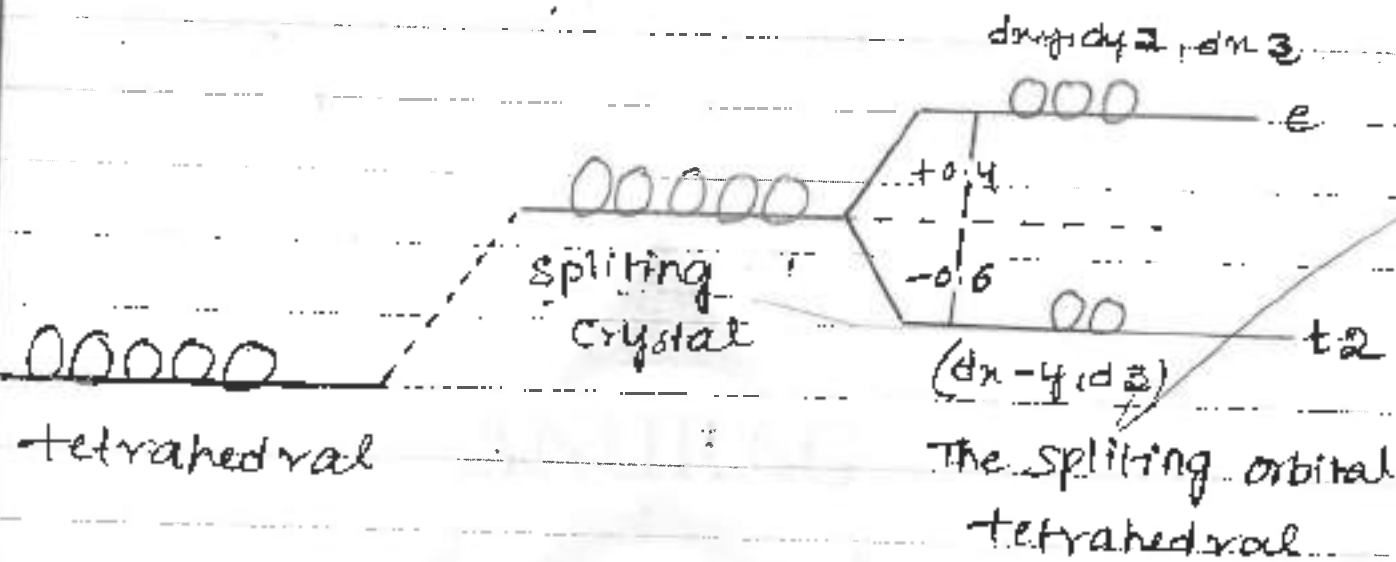 dxy, dyz, dxz
e
+0.4
-0.6
spliting
crystal
t2
(dx-y, dz)
tetrahedral
The spliting orbital
tetrahedral